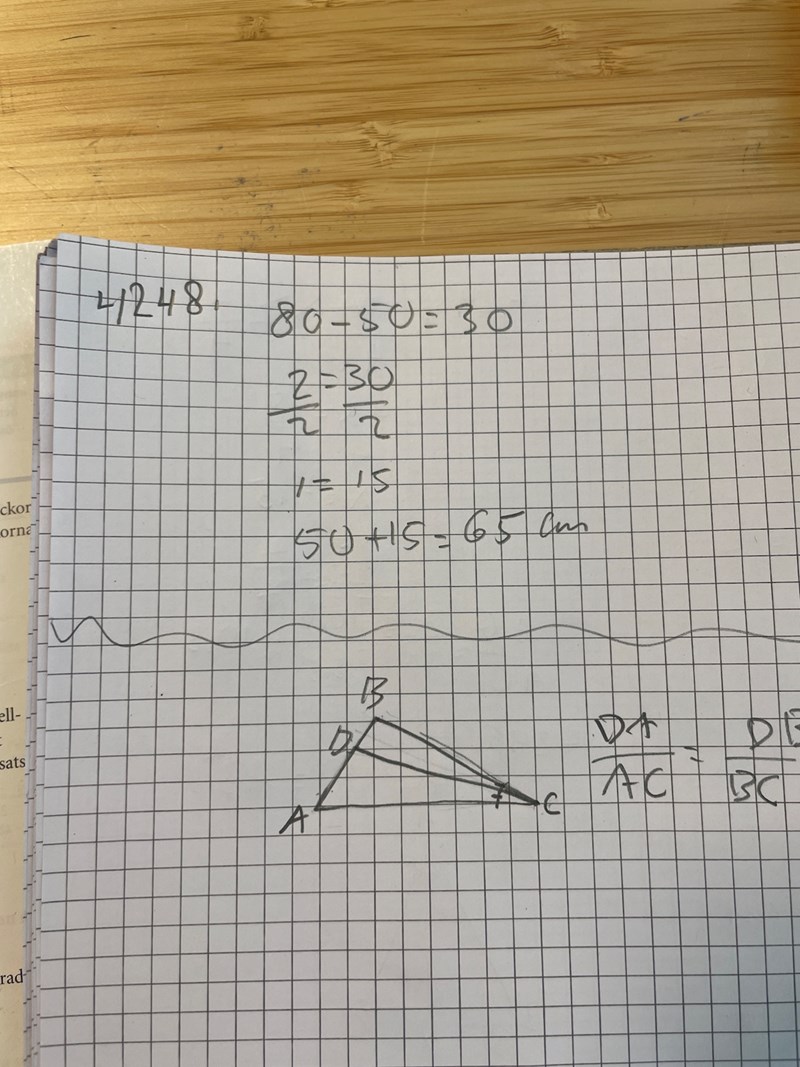 4248.
80-50=30
2/2 = 30/2
1 = 15
50+15=65 cm
ckor
orna
ell-
sats
rad-
B
D
A
C
DA/AC = DB/BC